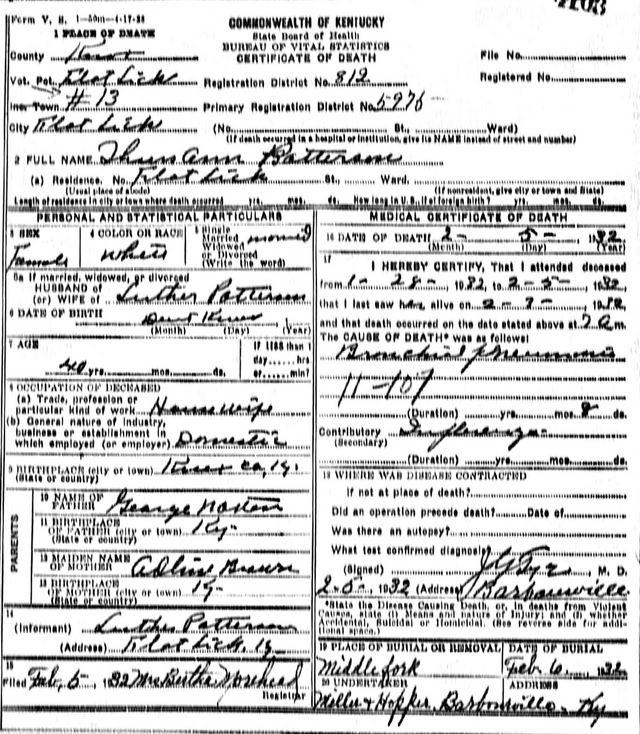 1103
Form V. S. 1-50m-4-17-28
COMMONWEALTH OF KENTUCKY
State Board of Health
BUREAU OF VITAL STATISTICS
CERTIFICATE OF DEATH
1 PLACE OF DEATH
County Knox
File No.
Vot. Pct. Flat Lick
Registration District No. 812
Registered No.
Inc. Town #13
Primary Registration District No. 5976
City Flat Lick (No. St., Ward)
(If death occurred in a hospital or institution, give its NAME instead of street and number)
2 FULL NAME Ann Patterson
(a) Residence. No. Flat Lick St., Ward.
(Usual place of abode) (If nonresident, give city or town and State)
Length of residence in city or town where death occurred yrs. mos. ds. How long in U. S., if of foreign birth? yrs. mos. ds.
PERSONAL AND STATISTICAL PARTICULARS
3 SEX Female
4 COLOR OR RACE White
5 Single Married Widowed or Divorced (Write the word) married
5a If married, widowed, or divorced
HUSBAND of
(or) WIFE of Luther Patterson
6 DATE OF BIRTH Dont Know
(Month) (Day) (Year)
7 AGE If LESS than 1
40 yrs. mos. ds. day hrs or min?
8 OCCUPATION OF DECEASED
(a) Trade, profession or
particular kind of work House wife
(b) General nature of industry,
business or establishment in
which employed (or employer) Domestic
9 BIRTHPLACE (city or town) Knox Co, Ky.
(State or country)
PARENTS
10 NAME OF FATHER George
11 BIRTHPLACE OF FATHER (city or town) Ky-
(State or country)
12 MAIDEN NAME OF MOTHER Adline Brown
13 BIRTHPLACE OF MOTHER (city or town) Ky-
(State or country)
14
(Informant) Luther Patterson
(Address) Flat Lick, Ky.
15
Filed Feb, 5- 1932 Mrs Bertha Morehead
Registrar
MEDICAL CERTIFICATE OF DEATH
16 DATE OF DEATH 2- 5- 1932
(Month) (Day) (Year)
17
I HEREBY CERTIFY, That I attended deceased
from 1- 28- 1932, to 2-5- 1932
that I last saw her alive on 2-3- 1932
and that death occurred on the date stated above at 7 a m.
The CAUSE OF DEATH* was as follows:
Bronchial pneumonia
11-107
(Duration) yrs. mos. 8 ds.
Contributory Influenza
(Secondary)
(Duration) yrs. mos. ds.
18 WHERE WAS DISEASE CONTRACTED
If not at place of death?
Did an operation precede death? Date of
Was there an autopsy?
What test confirmed diagnosis?
(Signed) M. D.
2-5- 1932 (Address) Barbourville
*State the Disease Causing Death, or, in deaths from Violent
Causes, state (1) Means and Nature of Injury; and (2) whether
Accidental, Suicidal or Homicidal. (See reverse side for addi-
tional space.)
19 PLACE OF BURIAL OR REMOVAL
Middlefork
DATE OF BURIAL
Feb 6, 1932
20 UNDERTAKER
Miller & Hopper,
ADDRESS
Barbourville - Ky